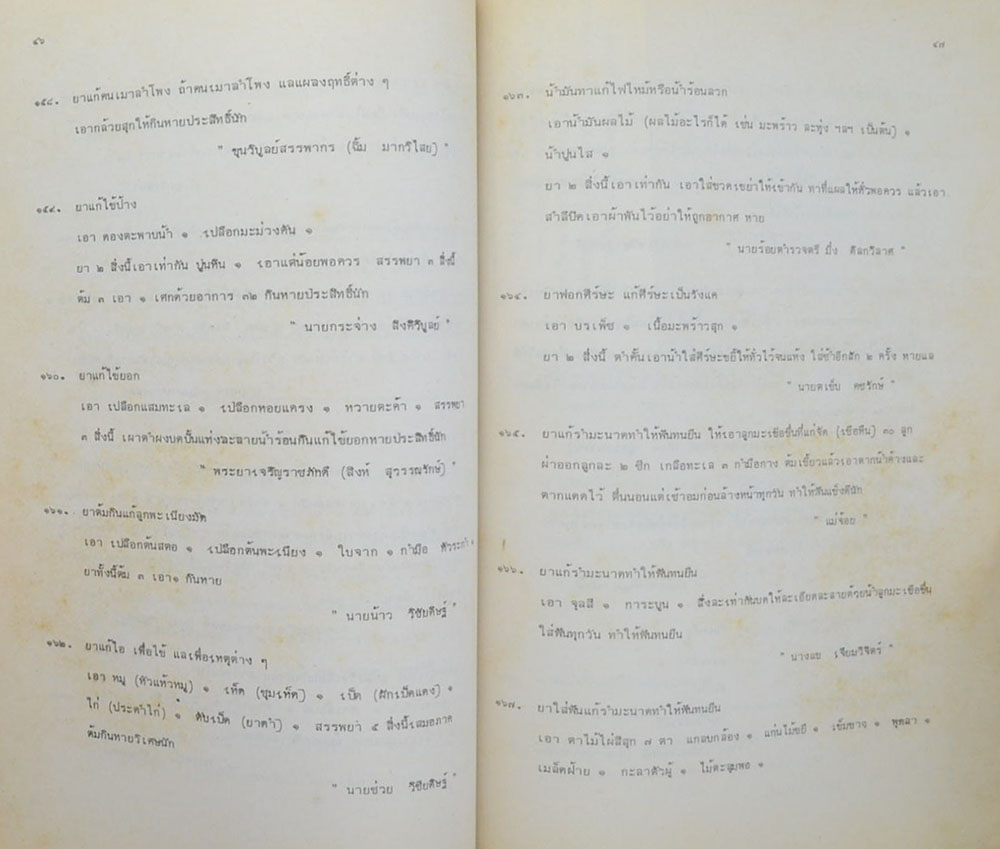 ๔๖
๑๕๘. ยาแก้คนเมาลำโพง ถ้าคนเมาลำโพง แลแผลงฤทธิ์ต่าง ๆ
เอากล้วยสุกให้กินหายประสิทธิ์นัก
" ขุนวิบูลย์สรรพากร (ฉิ้ม มากวิไสย) "
๑๕๙. ยาแก้ไข้ป้าง
เอา ดองตะพาบน้ำ ๑ เปลือกมะม่วงคัน ๑
ยา ๒ สิ่งนี้เอาเท่ากัน ปูนหิน ๑ เอาแต่น้อยพอควร สรรพยา ๓ สิ่งนี้
ต้ม ๓ เอา ๑ เศกด้วยอาการ ๓๒ กินหายประสิทธิ์นัก
" นายกระจ่าง สิงคิวิบูลย์ "
๑๖๐. ยาแก้ไข้ยอก
เอา เปลือกแสมทะเล ๑ เปลือกหอยแครง ๑ หวายตะค้า ๑ สรรพยา
๓ สิ่งนี้ เผาตำผงบดปั้นแท่งละลายน้ำร้อนกินแก้ไข้ยอกหายประสิทธิ์นัก
" พระยาเจริญราชภักดี (สิงห์ สุวรรณรักษ์) "
๑๖๑. ยาต้มกินแก้ลูกพะเนียงมัด
เอา เปลือกต้นสตอ ๑ เปลือกต้นพะเนียง ๑ ใบจาก ๑ กำมือ
ยาทั้งนี้ต้ม ๓ เอา๑ กินหาย
" นายน้าว วิชัยดิษฐ์ "
๑๖๒. ยาแก้ไอ เพื่อไข้ และเพื่อเหตุต่าง ๆ
เอา หมู (หัวแห้วหมู) ๑ เห็ด (ขุมเห็ด) ๑ เป็ด (ฝักเป็ดแดง) ๑
ไก่ (ประดำไก่) ๑ ตับเป็ด (ยาดำ) ๑ สรรพยา ๕ สิ่งนี้เสมอภาค
ต้มกินหายวิเศษนัก
" นายช่วย วิชัยดิษฐ์ "
๔๗
๑๖๓. น้ำมันทาแก้ไฟไหม้หรือน้ำร้อนลวก
เอาน้ำมันผลไม้ (ผลไม้อะไรก็ได้ เช่น มะพร้าว ละหุ่ง ฯลฯ เป็นต้น) ๑
น้ำปูนใส ๑
ยา ๒ สิ่งนี้เอาเท่ากัน เอาใส่ขวดเขย่าให้เข้ากัน ทาที่แผลให้ทั่วพอควร แล้วเอา
สำลีปิดเอาผ้าพันไว้อย่าให้ถูกอากาศ หาย
" นายร้อยตำรวจตรี มิ่ง ดิลกวิลาศ "
๑๖๔. ยาฟอกศีร์ษะ แก้ศีร์ษะเป็นรังแค
เอา บรเพ็ช ๑ เนื้อมะพร้าวสุก ๑
ยา ๒ สิ่งนี้ ตำคั้นเอาน้ำใส่ศีร์ษะขยี้ให้ทั่วไว้จนแห้ง ใส่ซ้ำอีกสัก ๒ ครั้ง หายแล
" นายตเข็บ คชรักษ์ "
๑๖๕. ยาแก้รำมะนาดทำให้ฟันทนยืน ให้เอาลูกมะเขือขื่นที่แก่จัด (เขือหืน) ๓๐ ลูก
ผ่าออกลูกละ ๒ ซีก เกลือทะเล ๓ กำมือกาง ต้มเขี้ยวแล้วเอาตากน้ำค้างและ
ตากแดดไว้ ตื่นนอนแต่เช้าอมก่อนล้างหน้าทุกวัน ทำให้ฟันแข็งดีนัก
" แม่จ้อย "
๑๖๖. ยาแก้รำมะนาดทำให้ฟันทนยืน
เอา จุลสี ๑ การะบูน ๑ สิ่งละเท่ากันบดให้ละเอียดละลายด้วยน้ำลูกมะเขือขื่น
ใส่ฟันทุกวัน ทำให้ฟันทนยืน
" นางลบ เจียมวิจิตร์ "
๑๖๗. ยาใส่ฟันแก้รำมะนาดทำให้ฟันทนยืน
เอา ตาไม้ไผ่สีสุก ๗ ตา แกลบกล้อง ๑ แก่นไม้ขยี ๑ เข็มขาจ ๑ พุดลา ๑
เมล็ดฝ้าย ๑ กะลาตัวผู้ ๑ ไม้ตะลุมพอ ๑